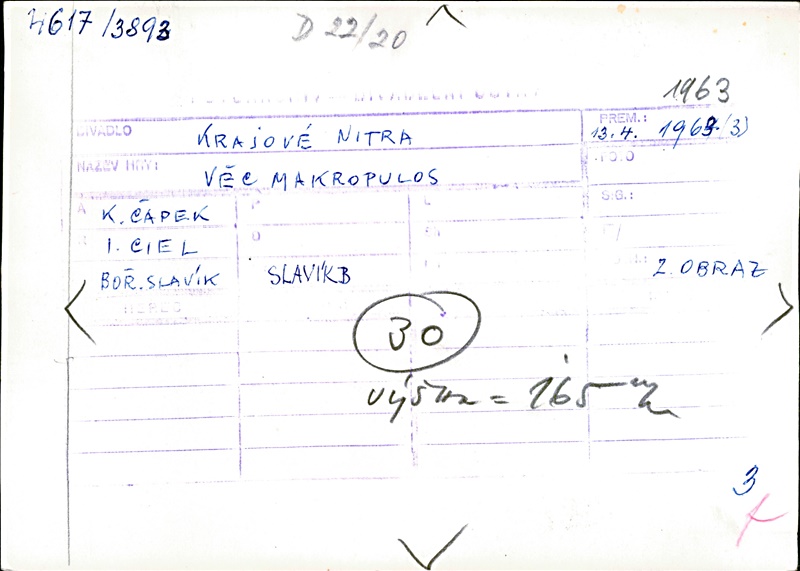 4617/3893
D 22/20
1963
DIVADLO KRAJOVÉ NITRA PREM.: 13.4. 1963 (3)
NÁZEV HRY: VĚC MAKROPULOS FOTO
A K. ČAPEK P L S.G.:
I. CIEL D
BOŘ. SLAVÍK SLAVÍK B 2. OBRAZ
HEREC
30
výška = 165 m/m
3